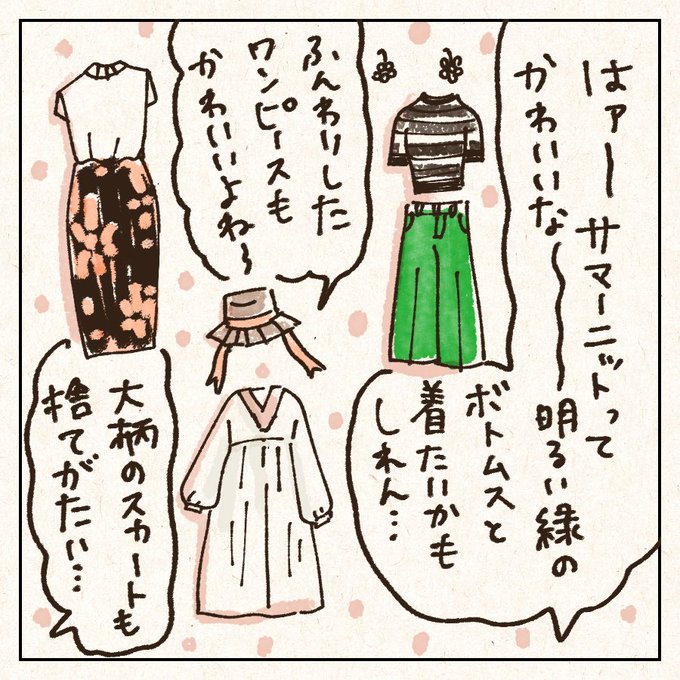 はァー サマーニットって
かわいいな〜 明るい緑の
ボトムスと
着たいかも
しれん…
ふんわりした
ワンピースも
かわいいよね〜
大柄のスカートも
捨てがたい…